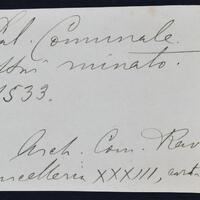 al. Comunale.
minato.
1533.
Arch. Com. Rav
ncelleria XXXIII, cart